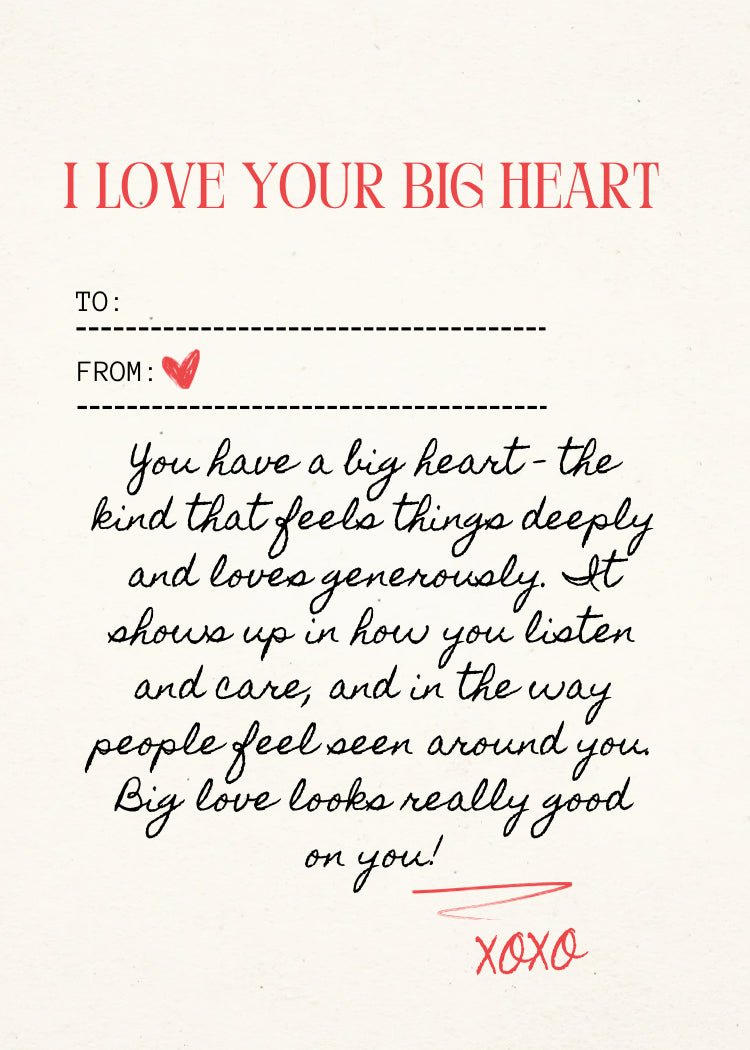 I LOVE YOUR BIG HEART
TO:
FROM:
You have a big heart - the
kind that feels things deeply
and loves generously. It
shows up in how you listen
and care, and in the way
people feel seen around you.
Big love looks really good
on you!
XOXO